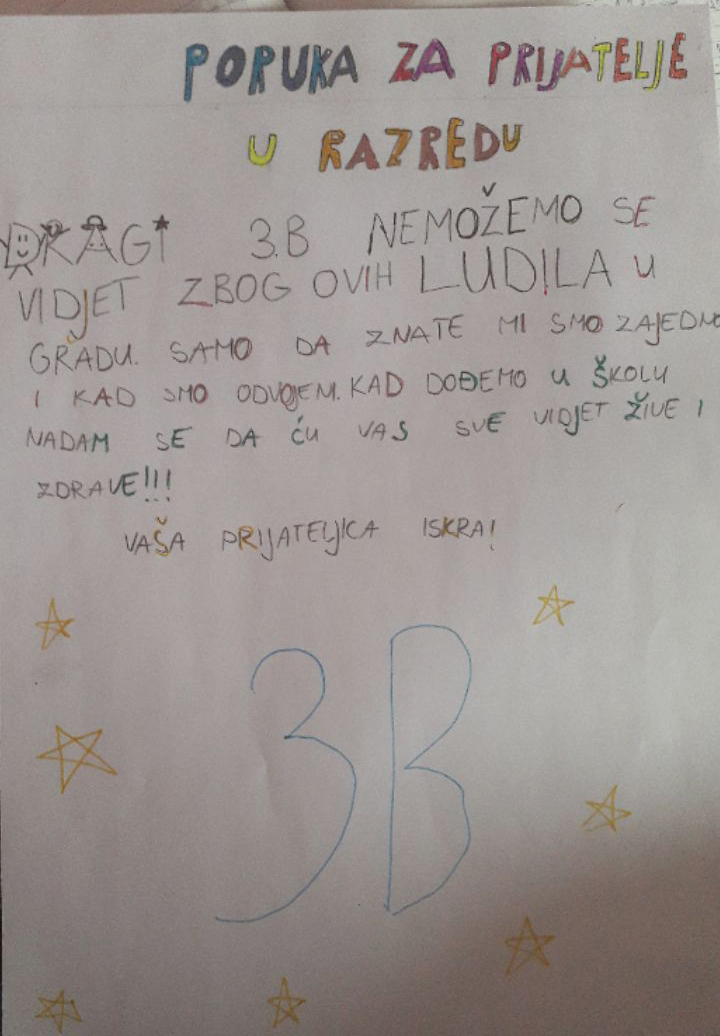 PORUKA ZA PRIJATELJE
U RAZREDU
DRAGI 3.B NEMOŽEMO SE
VIDJET ZBOG OVIH LUDILA U
GRADU. SAMO DA ZNATE MI SMO ZAJEDNO
I KAD SMO ODVOJEM. KAD DOĐEMO U ŠKOLU
NADAM SE DA ĆU VAS SVE VIDJET ŽIVE I
ZDRAVE!!!
VAŠA PRIJATELJICA ISKRA!
3B